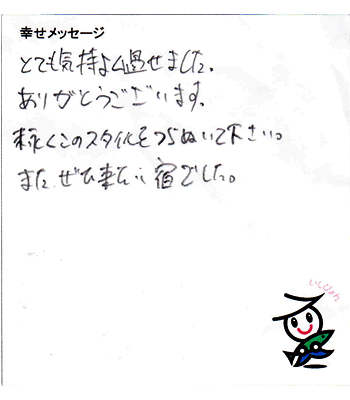 幸せメッセージ
とても気持よく過せました。
ありがとうございます。
末永くこのスタイルをつらぬいて下さい。
また、ぜひ来たい宿でした。